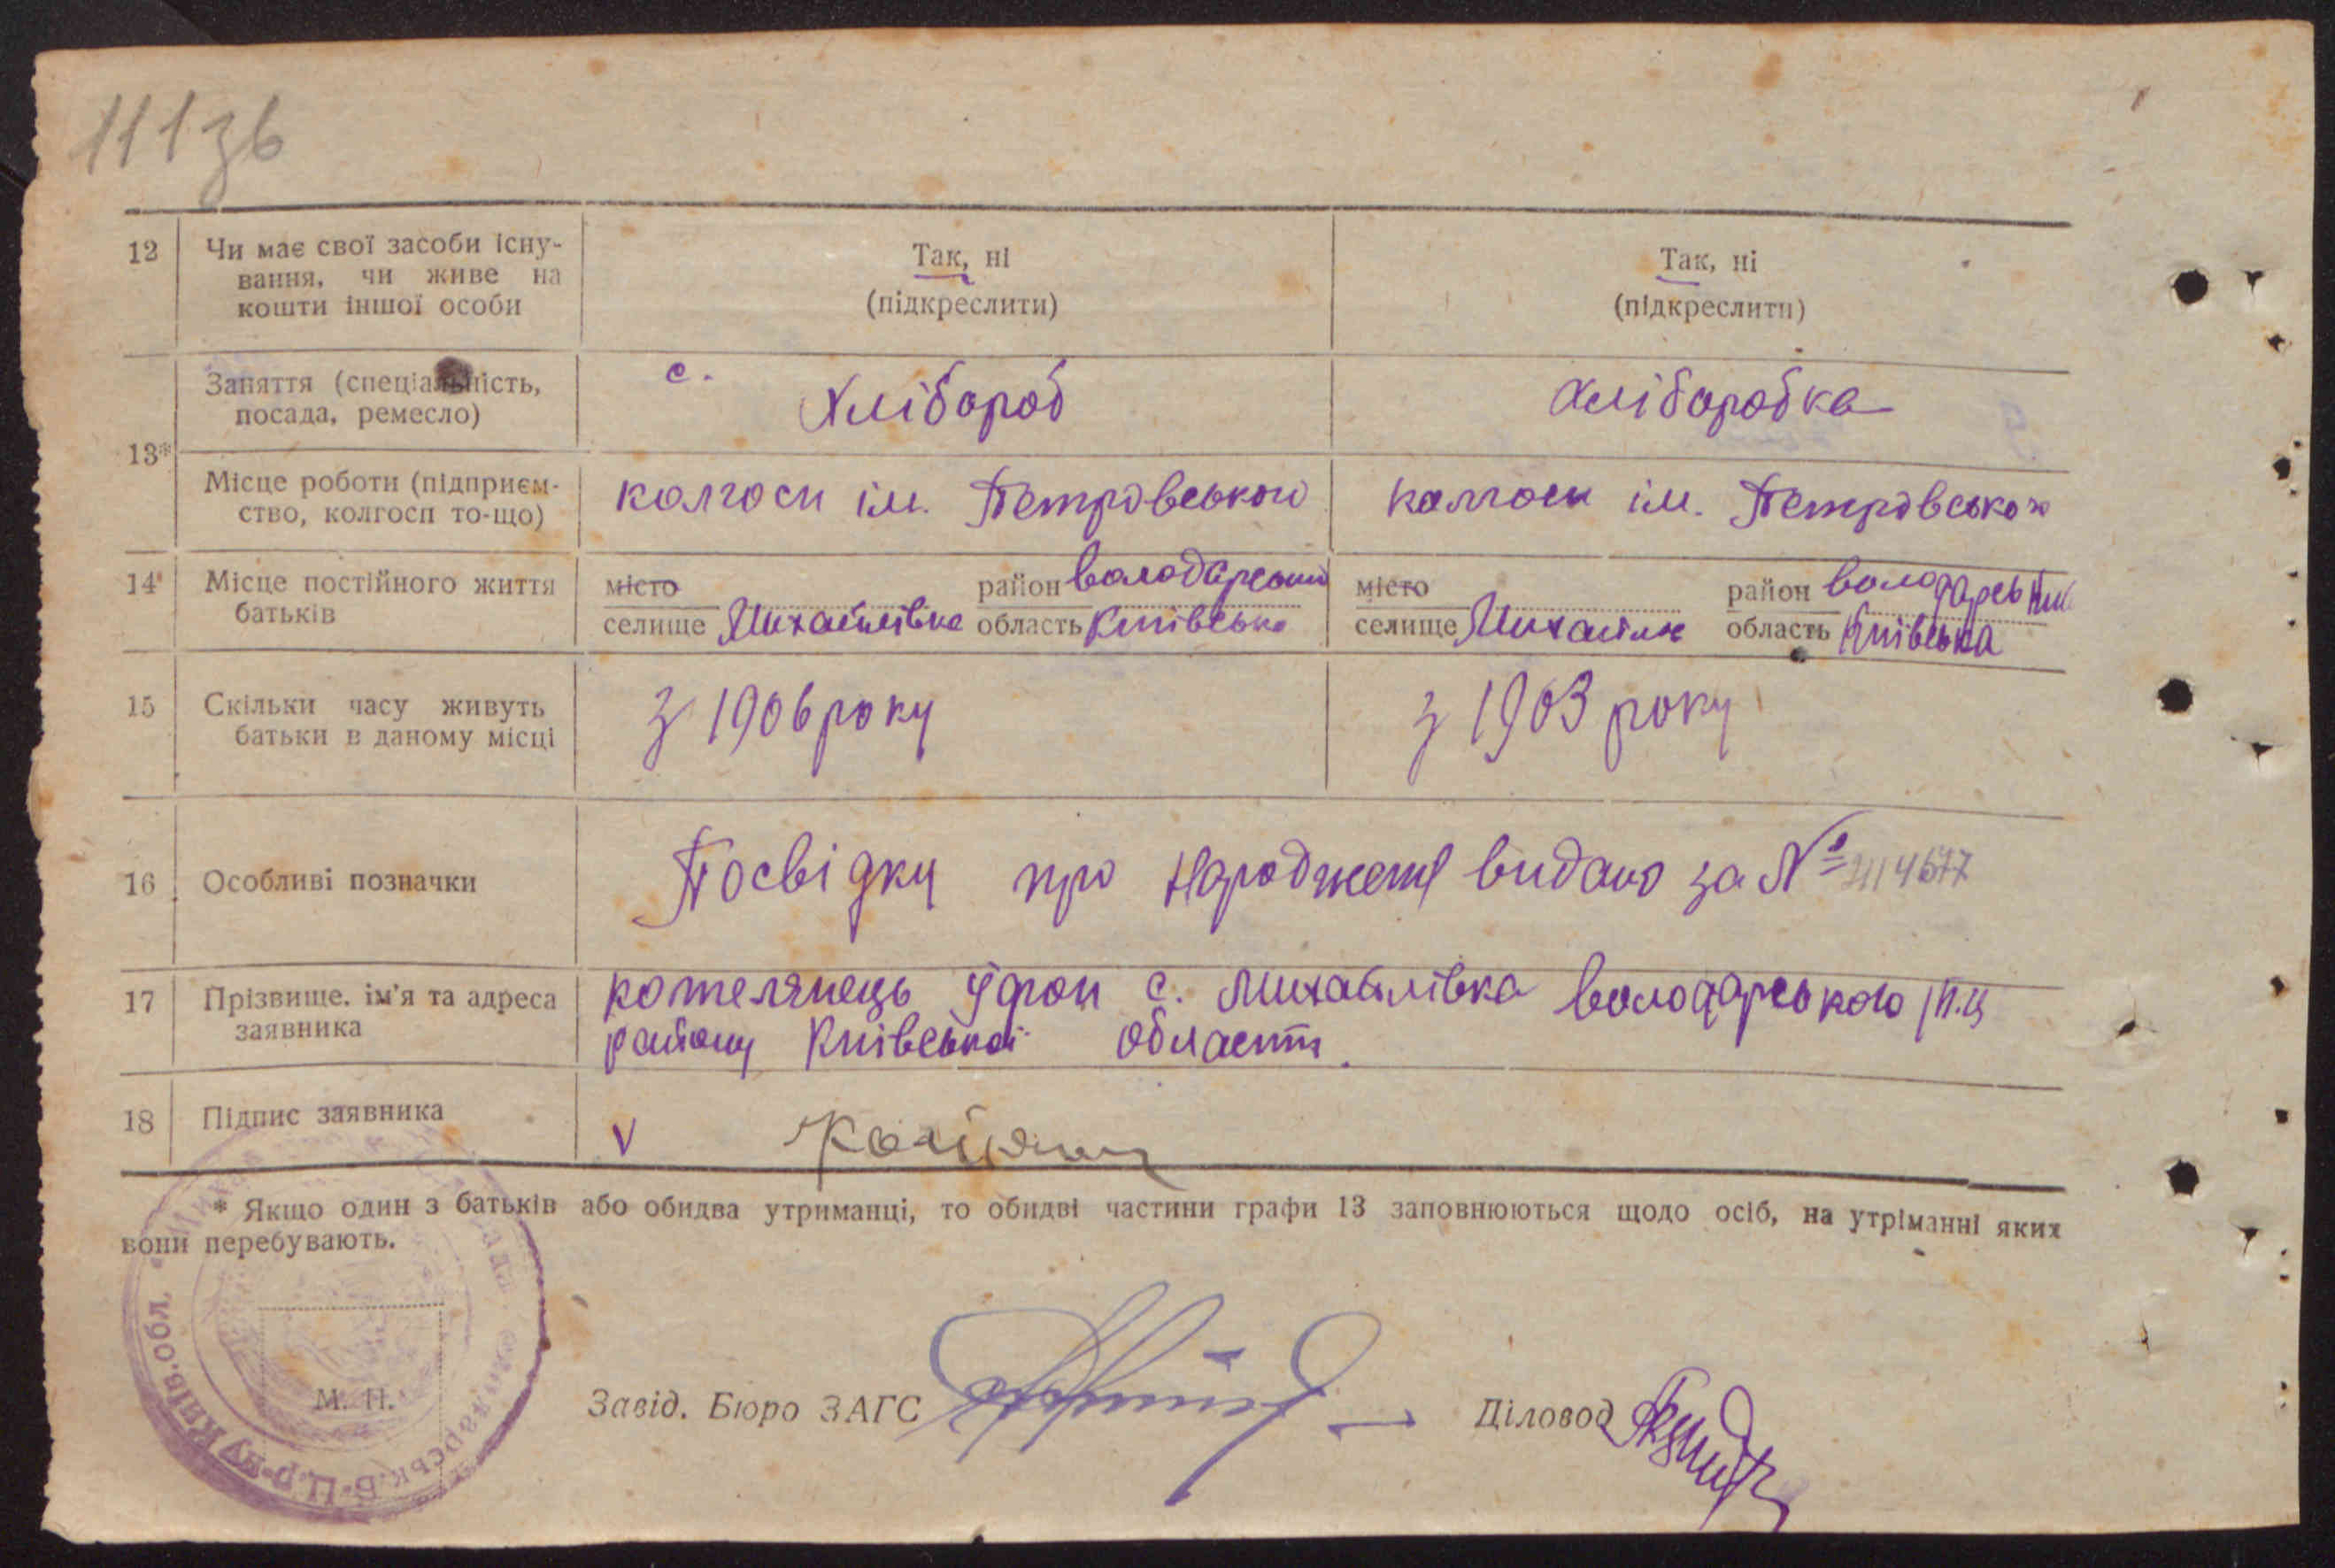 111зв
12 Чи має свої засоби існу-
вання, чи живе на
кошти іншої особи
Так, ні
(підкреслити)
Так, ні
(підкреслити)
13*
Заняття (спеціальність,
посада, ремесло)
с. Хлібороб
Хлібаробка
Місце роботи (підприєм-
ство, колгосп то-що)
колгосп ім. Петровського
колгосп ім. Петровського
14 Місце постійного життя
батьків
місто
район Володарський
селище Михайлівка область Київська
місто
район
селище область Київська
15 Скільки часу живуть
батьки в даному місці
з 1906 року
з 1903 року
16 Особливі позначки
Посвідку про народження видано за №
17 Прізвище, ім'я та адреса
заявника
Котелянець с. Михайлівка Володарського
району Київської області.
18 Підпис заявника
V
* Якщо один з батьків або обидва утриманці, то обидві частини графи 13 заповнюються щодо осіб, на утріманні яких
вони перебувають.
М. П.
Завід. Бюро ЗАГС
Діловод